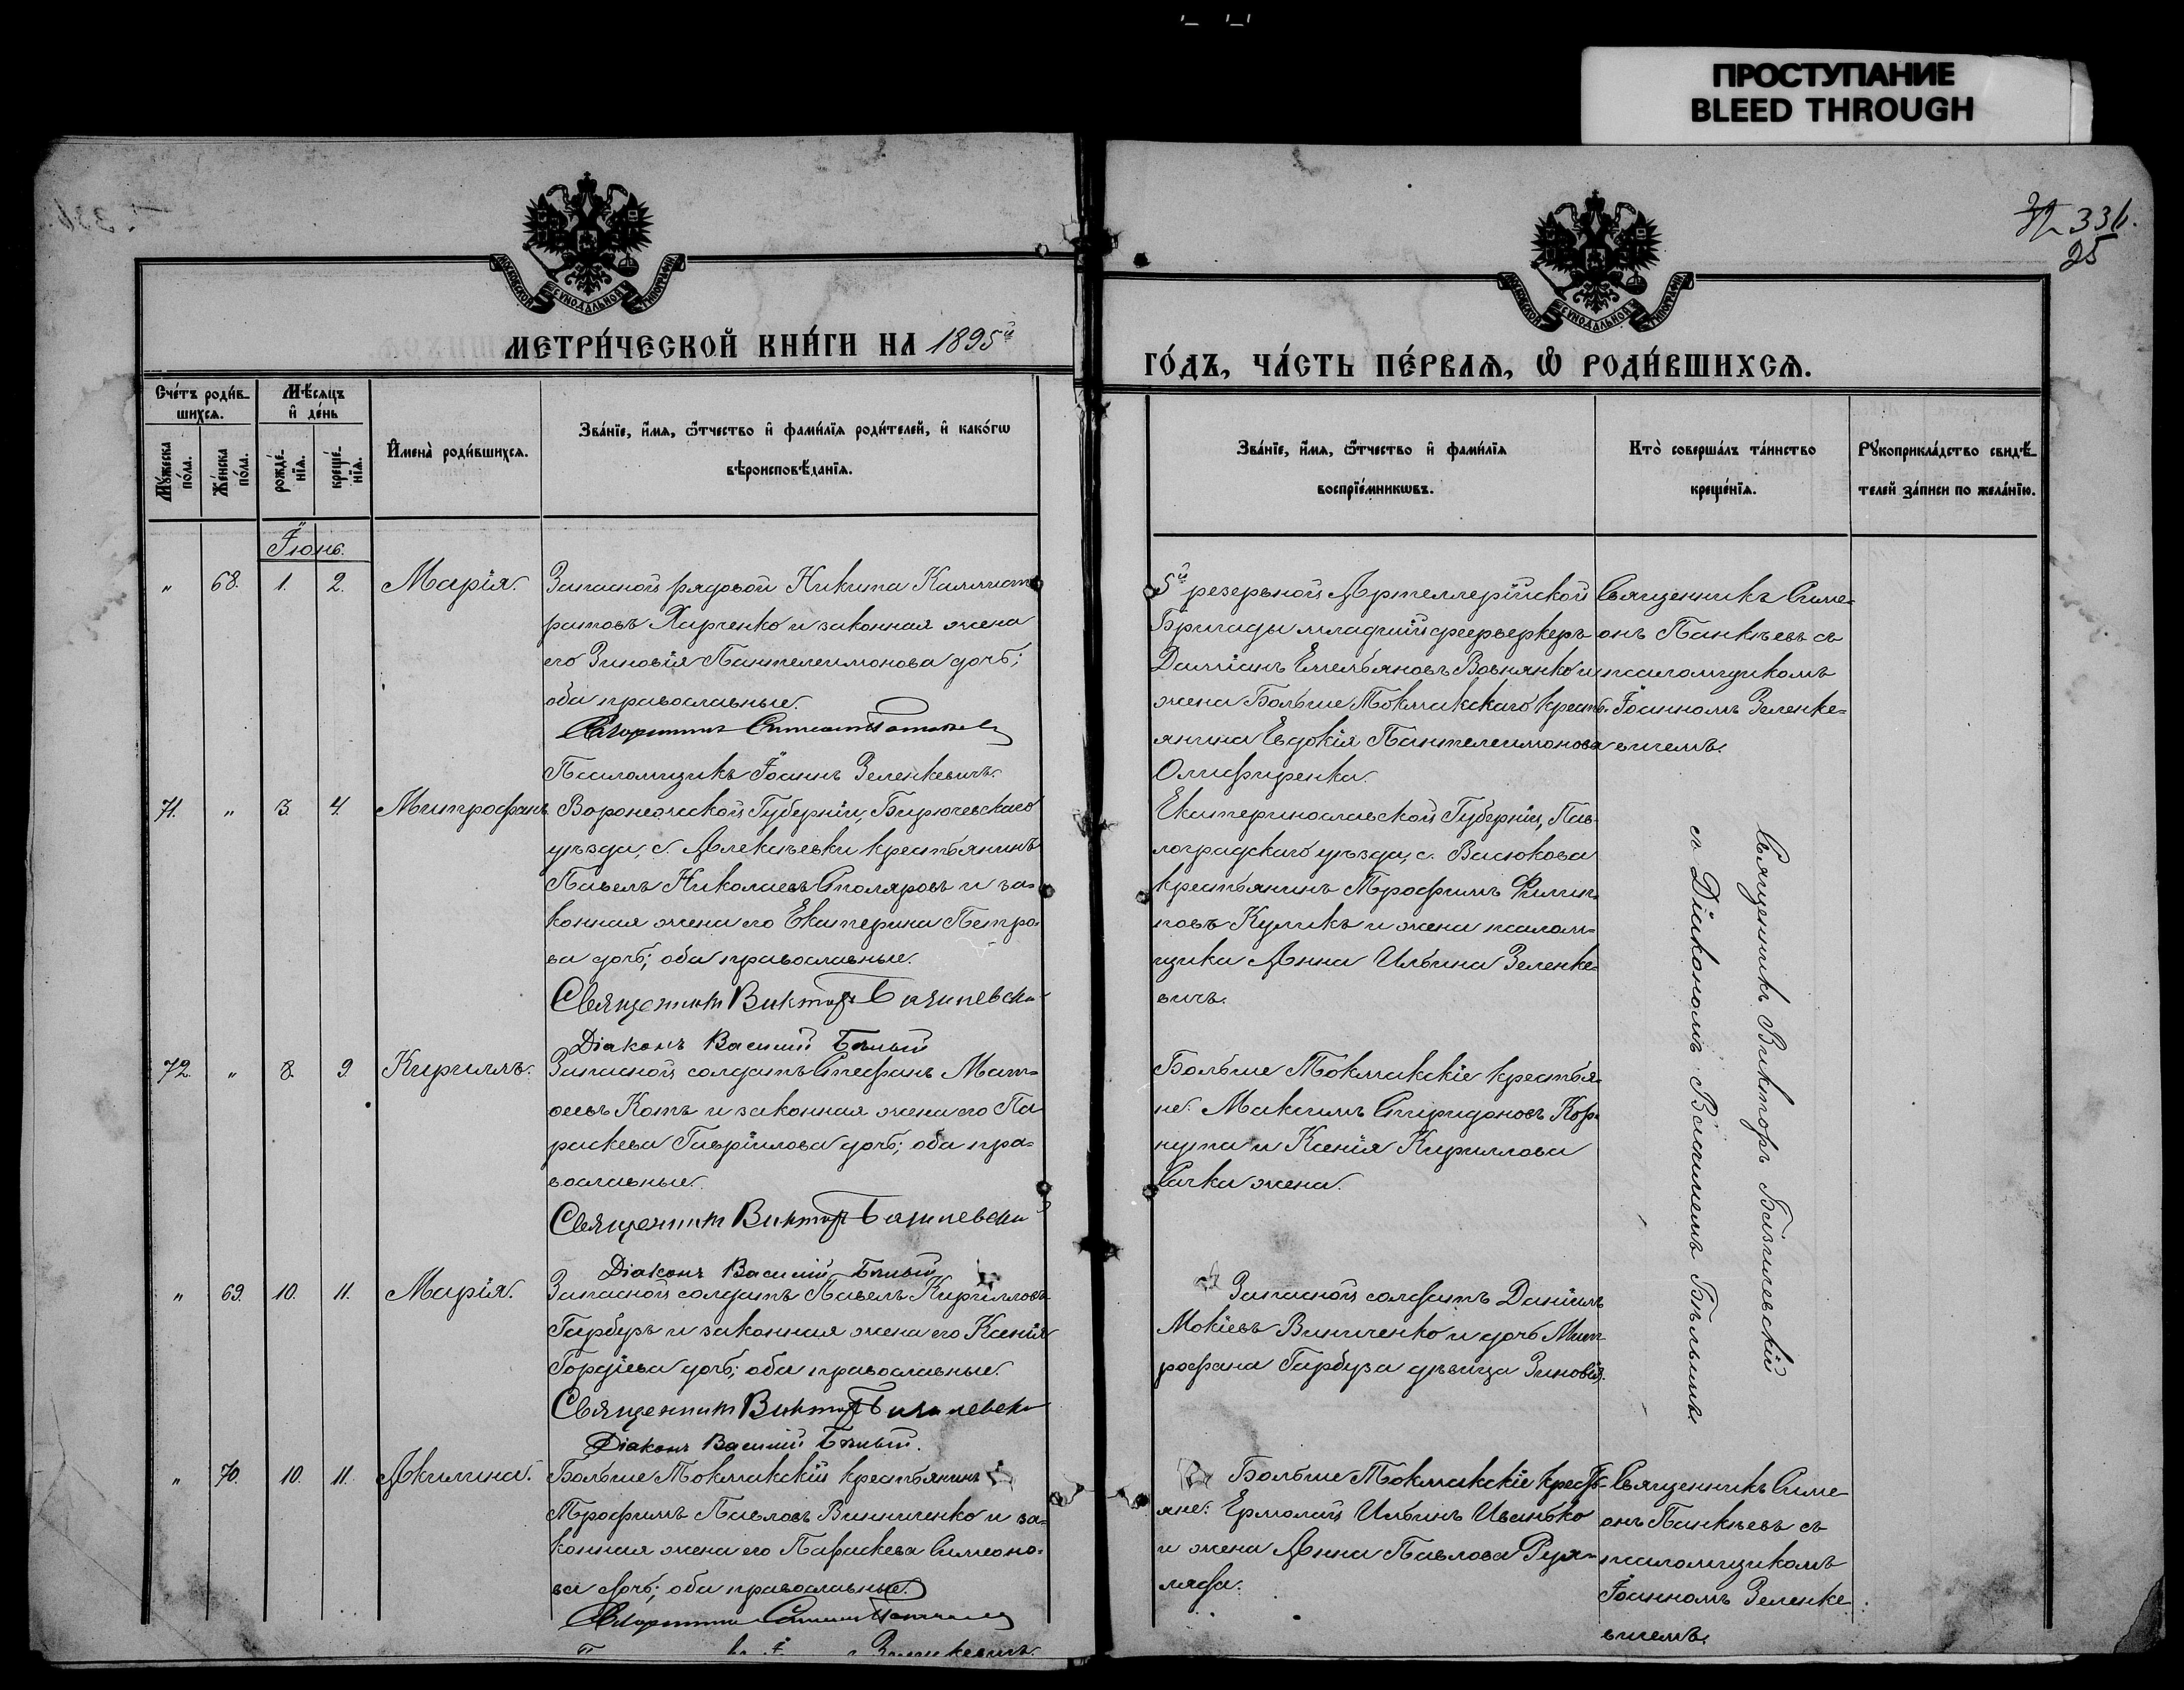 ПРОСТУПАНИЕ
BLEED THROUGH
336.
25
МОСКОВСКОЙ СѴНОДАЛЬНОЙ ТИПОГРАФІИ
МОСКОВСКОЙ СѴНОДАЛЬНОЙ ТИПОГРАФІИ
МЕТРИ́ЧЕСКОЙ КНИ́ГИ НА 1895й
ГО́ДЪ, ЧА́СТЬ ПЕ́РВАѦ, Ѿ РОДИ́ВШИХСѦ.
Сче́тъ роди́в-
шихсѧ.
Мѣ́сѧцъ
и҆ де́нь
Мꙋ́жеска по́ла.
Же́нска по́ла.
рожде́-
нїѧ.
креще́-
нїѧ.
И҆мена̀ роди́вшихсѧ.
Зва́нїе, и҆́мѧ, ѻ҆́тчество и҆ фами́лїѧ роди́телей, и҆ како́гѡ
вѣроисповѣ́данїѧ.
Зва́нїе, и҆́мѧ, ѻ҆́тчество и҆ фами́лїѧ
воспрїе́мникѡвъ.
Кто̀ соверша́лъ та́инство
креще́нїѧ.
Рꙋкоприкла́дство свидѣ́-
телей за́писи по жела́нїю.
Іюнь.
„ 68. 1. 2. Марія.
Запасной рядовой Никита Каллист
ратовъ Харченко и законная жена
его Зиновія Пантелеимонова дочь;
оба православные.
Псаломщикъ Іоаннъ Зеленкевичъ.
5й резервной Артеллерійской
Бригады младшій фееръверкеръ
Даміанъ Емельяновъ Вовнянко и
жена Больше Токмакскаго кресть-
янина Евдокія Пантелеимонова
Олифиренка.
Священникъ Симе-
онъ Панкѣевъ съ
псаломщикомъ
Іоанномъ Зеленке-
вичемъ.
71. „ 3. 4. Митрофанъ.
Воронежской Губерніи, Бирюческаго
уѣзда, с. Алексѣевки крестьянинъ
Павелъ Николаевъ Столяровъ и за-
конная жена его Екатерина Петро-
ва дочь; оба православные.
Священникъ Викторъ Базилевскій
Діаконъ Василій Бѣлый
Екатеринославской Губерніи, Пав-
лоградскаго уѣзда, с. Васюкова
крестьянинъ Трофимъ Филип-
повъ Куликъ и жена псалом-
щика Анна Ильина Зеленке-
вичъ.
Священникъ Викторъ Базилевскій
съ Діакономъ Василіемъ Бѣлымъ.
72. „ 8. 9. Кириллъ.
Запасной солдатъ Стефанъ Мат-
ѳеевъ Котъ и законная жена его Па
раскева Гавріилова дочь; оба пра-
вославные.
Священникъ Викторъ Базилевскій
Діаконъ Василій Бѣлый
Больше Токмакскіе крестья-
не: Максимъ Спиридоновъ Кор-
нута и Ксенія Кириллова
Сачка жена.
„ 69. 10. 11. Марія.
Запасной солдатъ Павелъ Кирилловъ
Гарбузъ и законная жена его Ксенія
Гордіева дочь; оба православные.
Священникъ Викторъ Базилевскій
Діаконъ Василій Бѣлый.
Запасной солдатъ Даніилъ
Мокіевъ Виниченко и дочь Мит-
рофана Гарбуза дѣвица Зиновія.
„ 70. 10. 11. Акилина.
Больше Токмакскій крестьянинъ
Трофимъ Павловъ Винниченко и за-
конная жена его Параскева Симеоно-
ва дочь; оба православные.
Зеленкевичъ.
Больше Токмакскіе кресть-
яне: Ермолай Ильинъ Иванько
и жена Анна Павлова
Священникъ Симе
онъ Панкѣевъ съ
псаломщикомъ
Іоанномъ Зеленке
вичемъ.